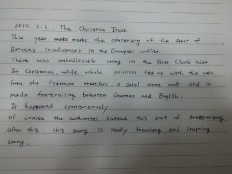 Unit 1.1 The Christmas Truce
This year marks the centenary of the start of
Britain's involvement in the European conflict.
There was unbelievable thing in the First World War
At Christmas, while whole soldiers fed up with the war
from the German trenches a carol came out and it
made fraternizing between German and English.
It happened spontaneously
Of course the authorities banned this sort of
after this. this story is really touching and inspiring
story.